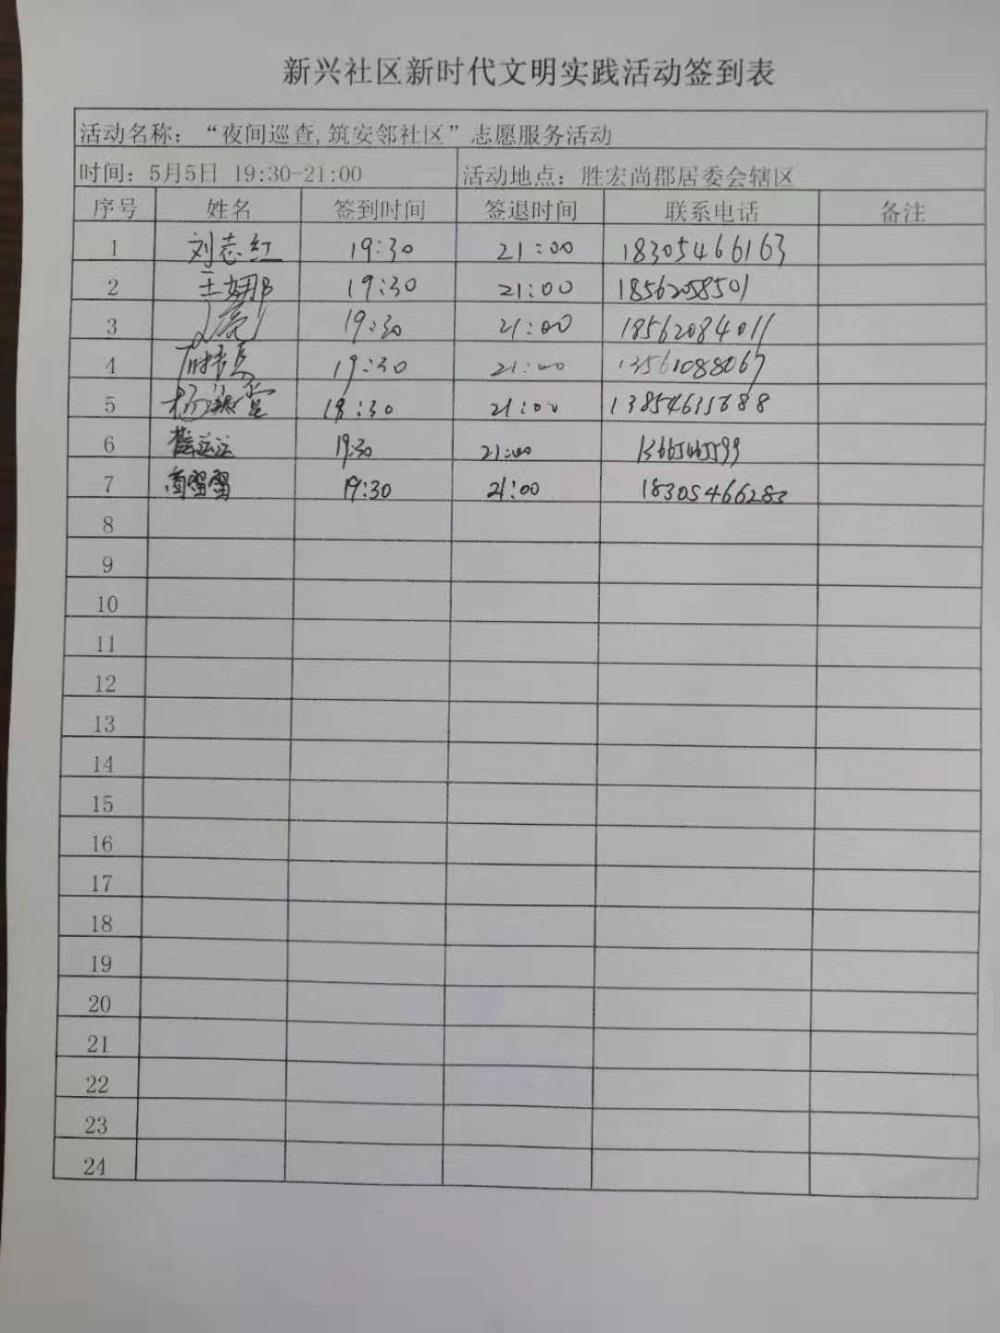 新兴社区新时代文明实践活动签到表
活动名称：“夜间巡查,筑安邻社区”志愿服务活动
时间：5月5日 19:30-21:00 活动地点：胜宏尚郡居委会辖区
序号 姓名 签到时间 签退时间 联系电话 备注
1 刘志红 19:30 21:00 18305466163
2 王娜 19:30 21:00 18562058501
3 19:30 21:00 18562084011
4 19:30 21:00 13561088067
5 19:30 21:00 13854615688
6 19:30 21:00
7 19:30 21:00 18305466283
8
9
10
11
12
13
14
15
16
17
18
19
20
21
22
23
24